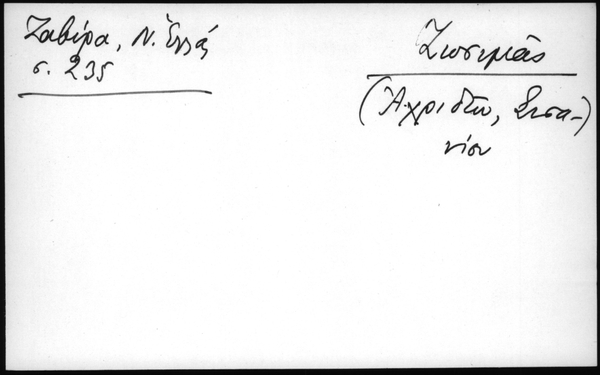 Ζαβίρα, Ν. Ἑλλάς
σ. 235
Ζωσιμᾶς
(Ἀχριδῶν, Σισα-)
νίου